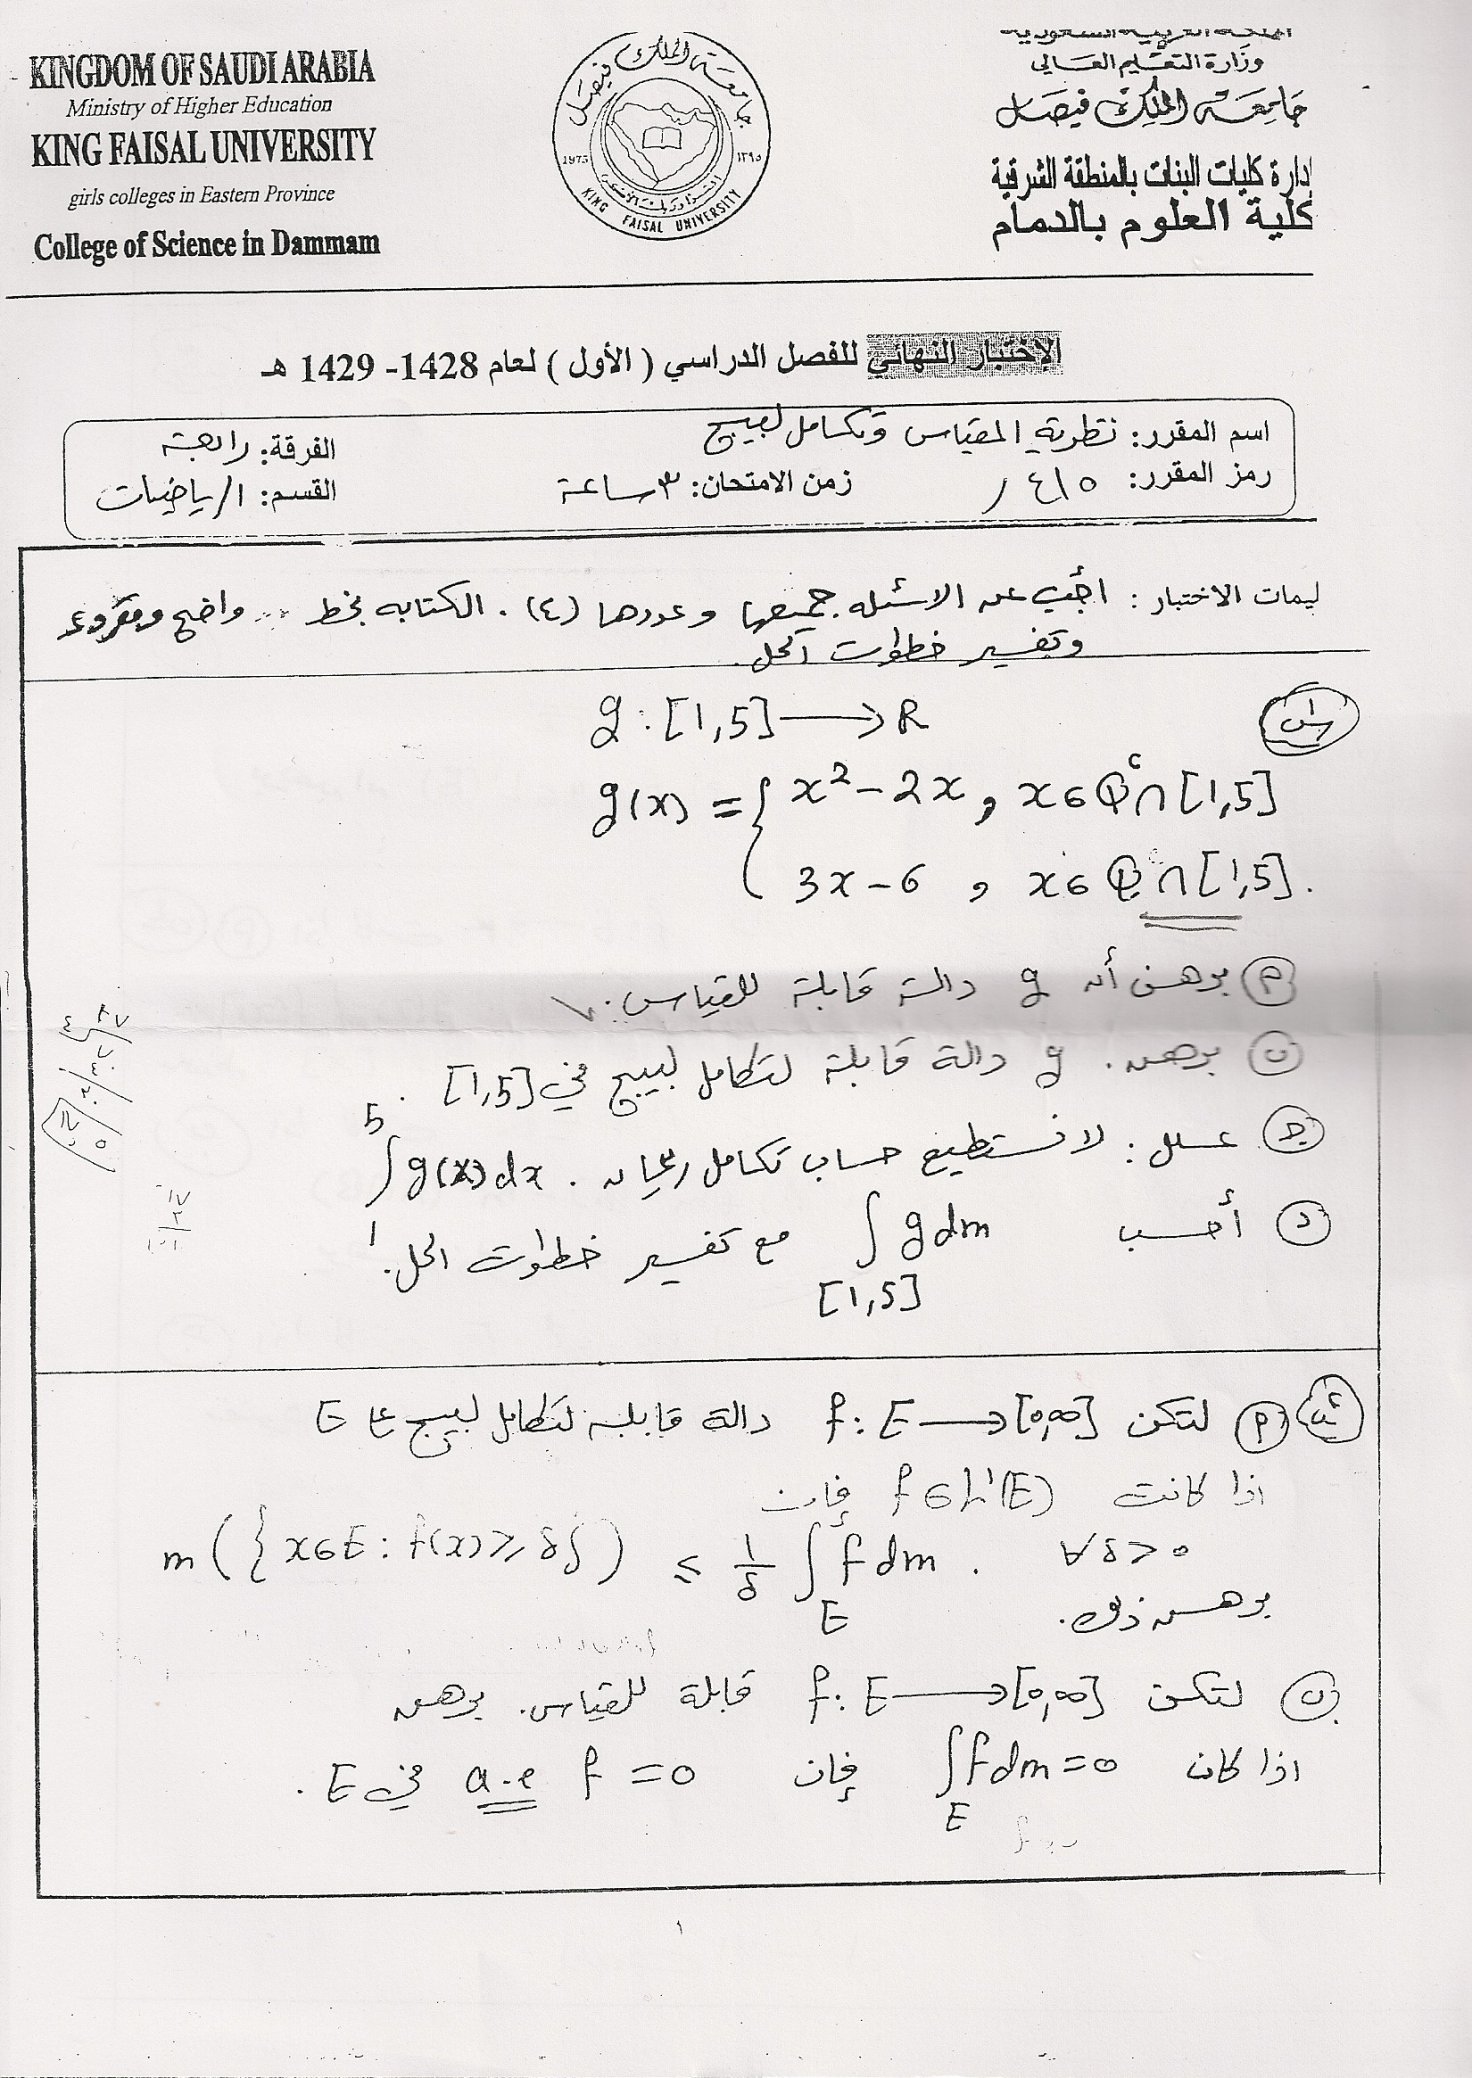 KINGDOM OF SAUDI ARABIA
Ministry of Higher Education
KING FAISAL UNIVERSITY
girls colleges in Eastern Province
College of Science in Dammam
جامعة الملك فيصل
1975 ١٣٩٥
KING FAISAL UNIVERSITY
المملكة العربية السعودية
وزارة التعليم العالي
جامعة الملك فيصل
إدارة كليات البنات بالمنطقة الشرقية
كلية العلوم بالدمام
الإختبار النهائي للفصل الدراسي ( الأول ) لعام 1428- 1429 هـ
اسم المقرر: نظرية المقياس وتكامل لبييج الفرقة: رابعة
رمز المقرر: ٤١٥ ر زمن الامتحان: ٣ ساعة القسم: الرياضيات
ليمات الاختبار : أجب عن الاسئله جميعها وعددها (٤) . الكتابه بخط واضح ومقروء
وتفسير خطوات الحل.
س١ g : [1,5] ⟶ R
g(x) = { x² - 2x , x ∈ Qᶜ ∩ [1,5]
3x - 6 , x ∈ Q ∩ [1,5].
(م) برهن أن g دالة قابلة للقياس.
(ب) برهن. g دالة قابلة لتكامل لبيج في [1,5] .
(ج) علل : لا نستطيع حساب تكامل ريمان . ∫₁⁵ g(x) dx
(د) أحسب ∫ g dm مع تفسير خطوات الحل.
[1,5]
س٢ (م) لتكن f : E ⟶ [0,∞] دالة قابلة لتكامل لبيج على E
اذا كانت f ∈ L¹(E) فإن
m ( { x ∈ E : f(x) ≥ δ } ) ≤ 1/δ ∫ f dm . ∀ δ > 0
E
برهن ذلك.
(ب) لتكن f : E ⟶ [0,∞] قابلة للقياس. برهن
اذا كان ∫ f dm = 0 فإن f = 0 a.e في E .
E
١